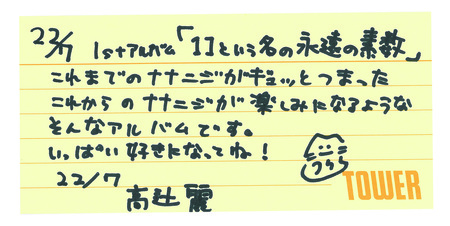 22/7 1stアルバム「11という名の永遠の素数」
これまでのナナニジがギュッとつまった
これからのナナニジが楽しみになるような
そんなアルバムです。
いっぱい好きになってね!
うらら
22/7
高辻 麗
TOWER